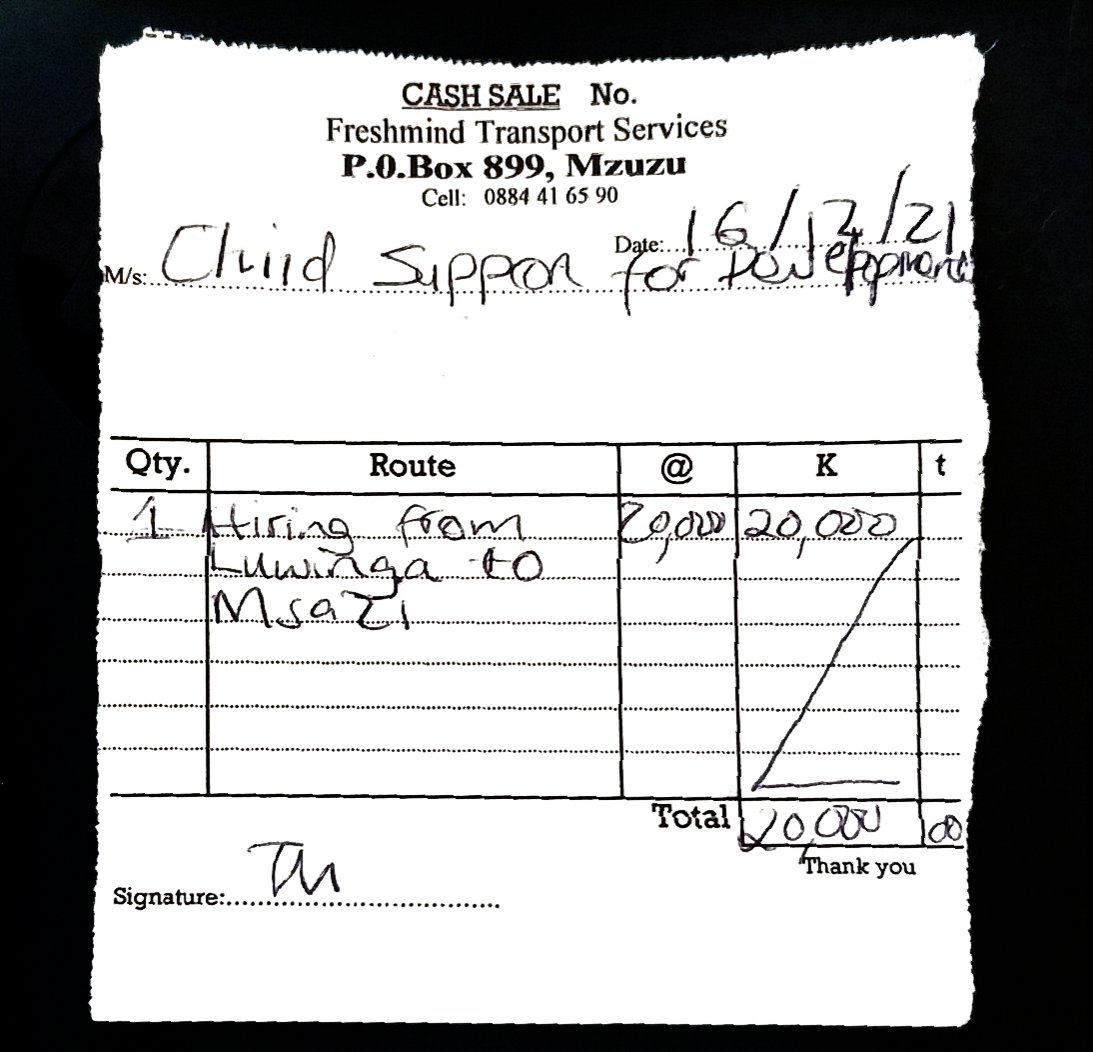 CASH SALE No.
Freshmind Transport Services
P.O.Box 899, Mzuzu
Cell: 0884 41 65 90
Date: 16/12/21
M/s: Child Support for Development
Qty. Route @ K t
1 Hiring from 20,000 20,000
Luwinga to
Msazi
Total 20,000 00
Thank you
Signature: